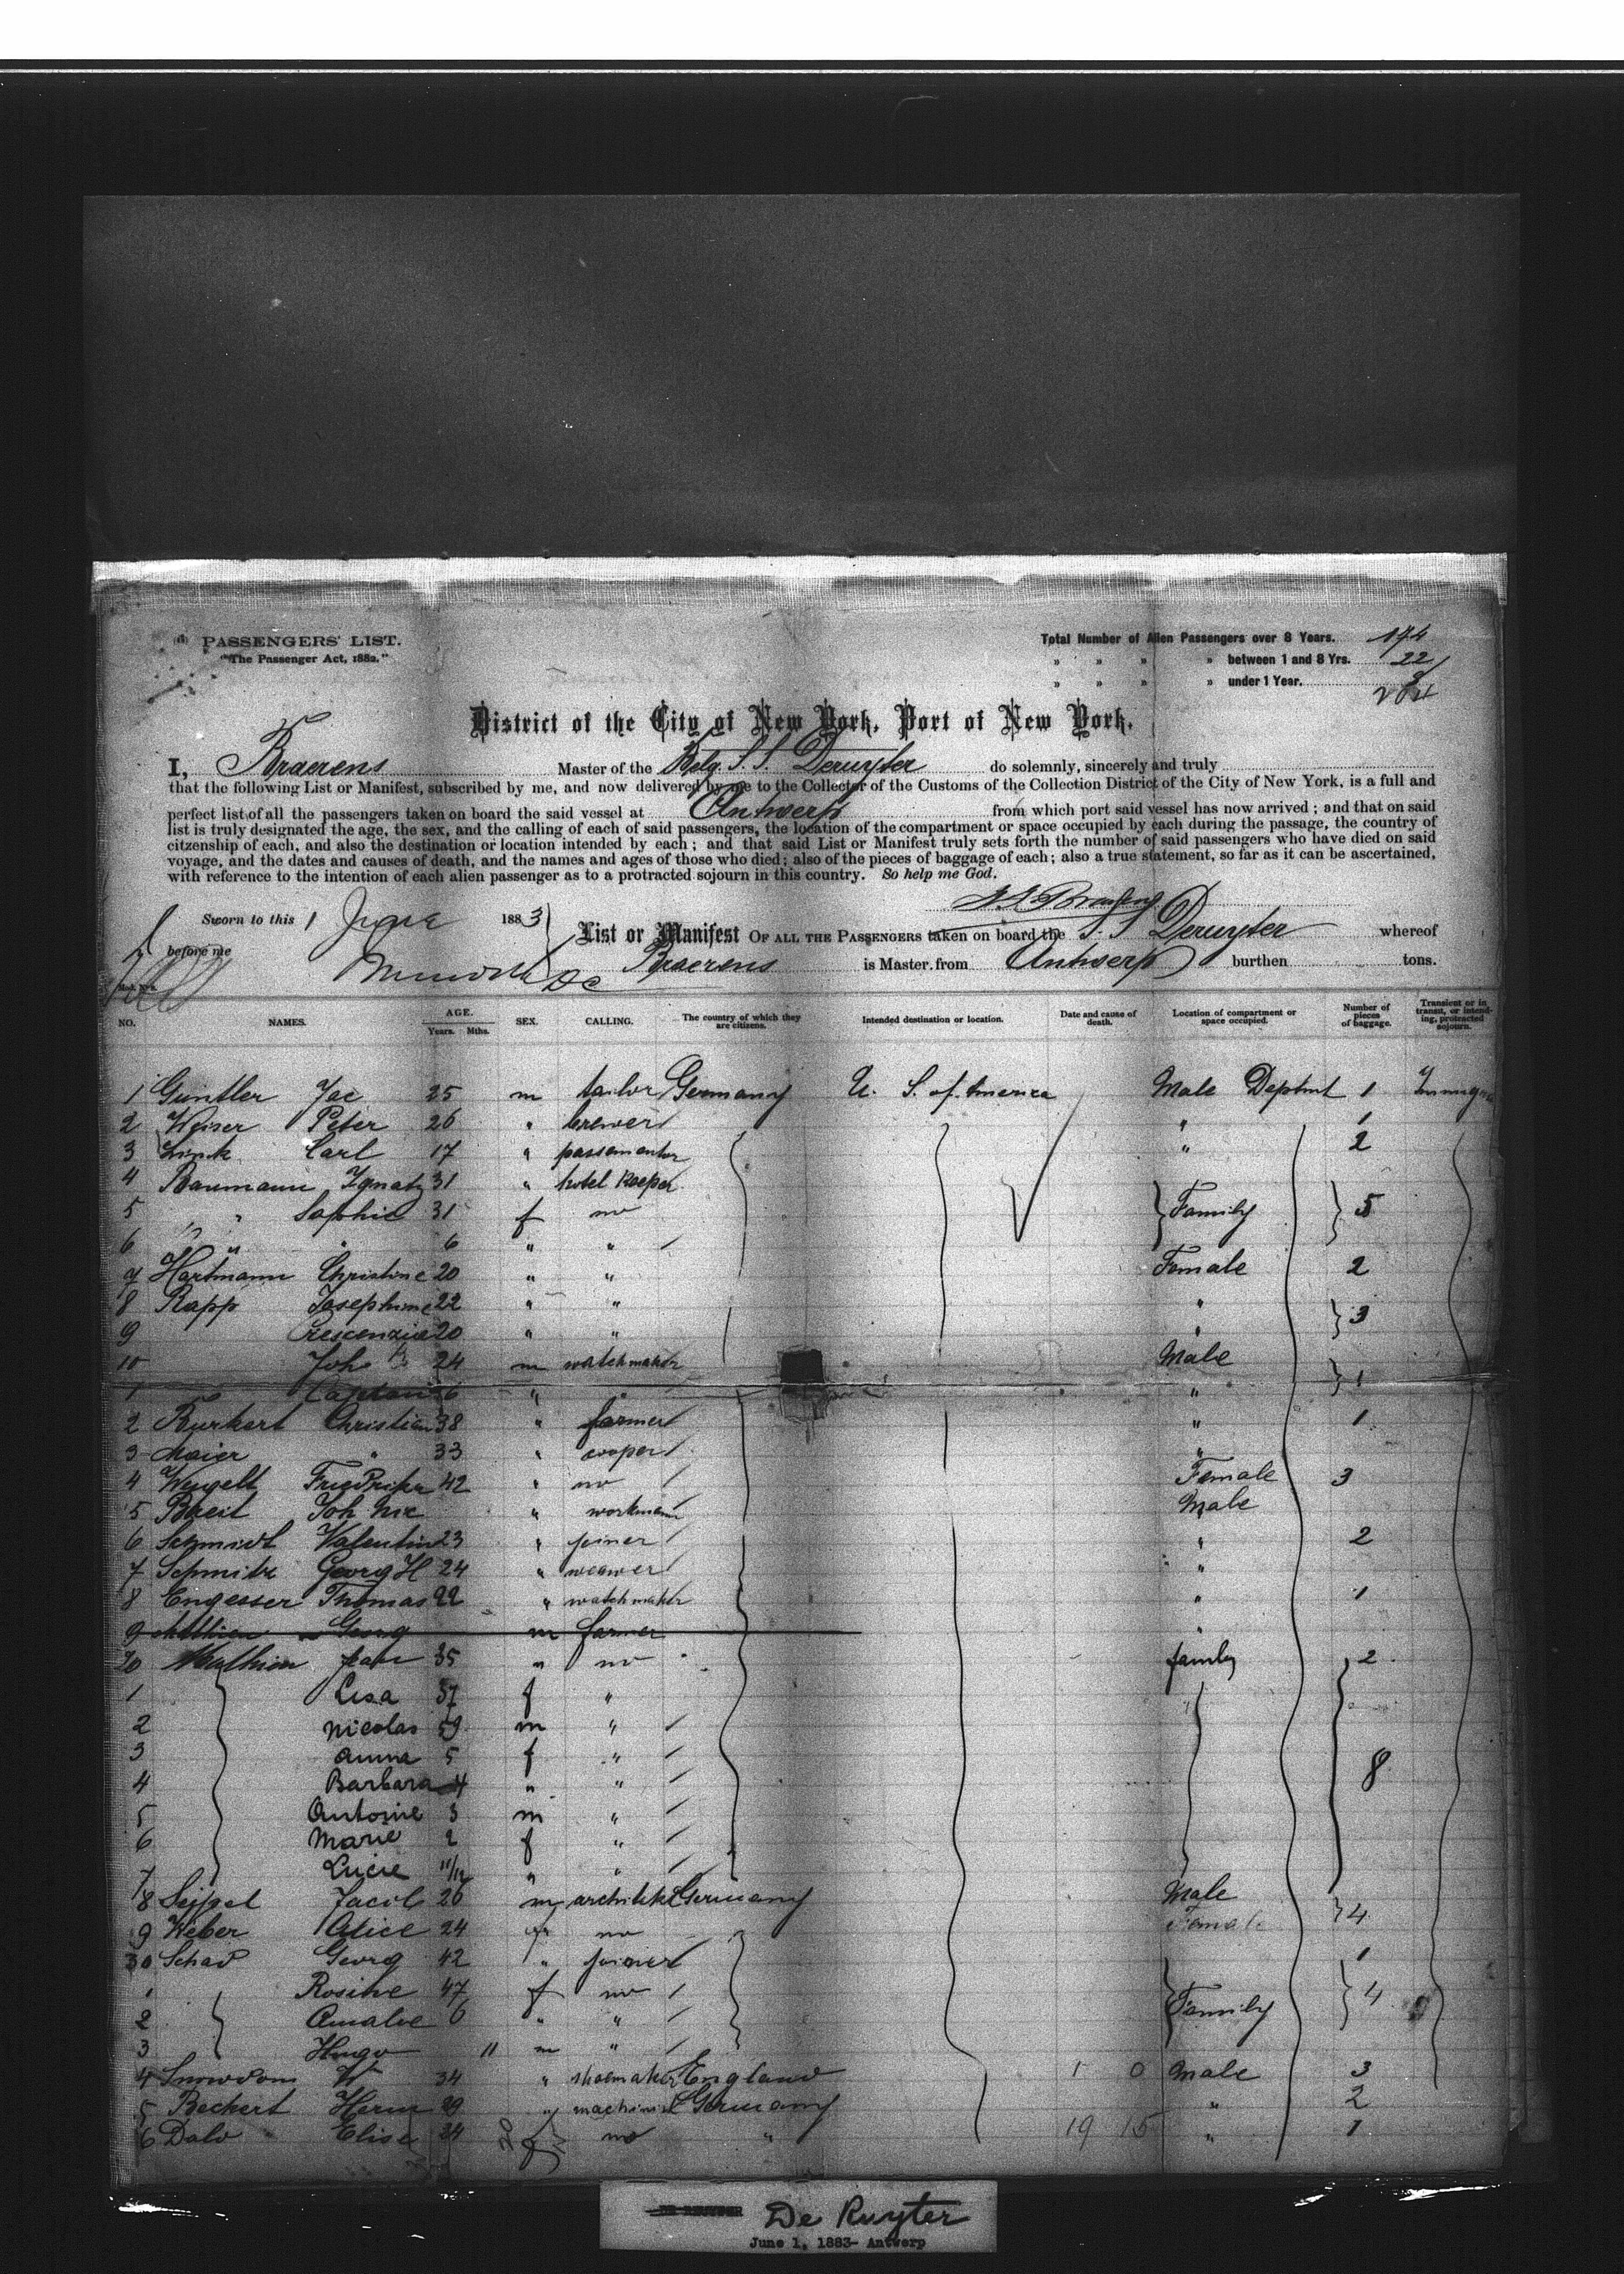 PASSENGERS' LIST.
"The Passenger Act, 1882."
Total Number of Alien Passengers over 8 Years. 174
" " " " between 1 and 8 Yrs. 22
" " " " under 1 Year. 8
204
District of the City of New York, Port of New York.
I, Braerens Master of the Belg. S. S. Deruyter do solemnly, sincerely and truly
that the following List or Manifest, subscribed by me, and now delivered by me to the Collector of the Customs of the Collection District of the City of New York, is a full and
perfect list of all the passengers taken on board the said vessel at Antwerp from which port said vessel has now arrived; and that on said
list is truly designated the age, the sex, and the calling of each of said passengers, the location of the compartment or space occupied by each during the passage, the country of
citzenship of each, and also the destination or location intended by each; and that said List or Manifest truly sets forth the number of said passengers who have died on said
voyage, and the dates and causes of death, and the names and ages of those who died; also of the pieces of baggage of each; also a true statement, so far as it can be ascertained,
with reference to the intention of each alien passenger as to a protracted sojourn in this country. So help me God.
Sworn to this 1 June 1883
before me
List or Manifest OF ALL THE PASSENGERS taken on board the S. S Deruyter whereof
Braerens is Master, from Antwerp burthen tons.
NO. NAMES. AGE. Years. Mths. SEX. CALLING. The country of which they are citizens. Intended destination or location. Date and cause of death. Location of compartment or space occupied. Number of pieces of baggage. Transient or in transit, or intending, protracted sojourn.
1 Guntler Jac 25 m tailor Germany U. S. of America Male Deptmt 1
2 Weiser Peter 26 " brewer " 1
3 Link Carl 17 " " 2
4 Baumann Ignatz 31 " hotel keeper
5 " " Sophie 31 f no Family 5
6 " " " 6 " "
7 Hartmann Christine 20 " " Female 2
8 Rapp Josephine 22 " " "
9 Crescenzia 20 " " " 3
10 Joh 24 m watchmaker Male
1 6 " " 1
2 Burkart Christian 38 " farmer " 1
3 Maier " 33 " cooper "
4 Weigelt 42 " no Female 3
5 Breit Joh Nic " workman Male
6 Schmidt Valentin 23 " joiner " 2
7 Schmitz Georg H 24 " weawer "
8 Engesser Thomas 22 " watchmaker " 1
9 Mathieu Georg m farmer "
20 Mathieu Jean 35 " no family 2
1 Lisa 37 f "
2 Nicolas 59 m "
3 Anna 5 f "
4 Barbara 4 " " 8
5 Antoine 3 m "
6 Marie 2 f "
7 Lucie 11/12 " "
8 Seippel Jacob 26 m architekt Germany Male
9 Weber Alice 24 no Female 4
30 Schad Georg 42 " joiner 1
1 Rosine 47 f no
2 Amalie 6 " " Family 4
3 Hugo 11 m "
4 Snowdon W 34 " shoemaker England 1 0 Male 3
5 Beckert Herm 29 " machinist Germany " 2
6 Elise 24 f no " 19 15 " 1
De Ruyter
June 1, 1883- Antwerp